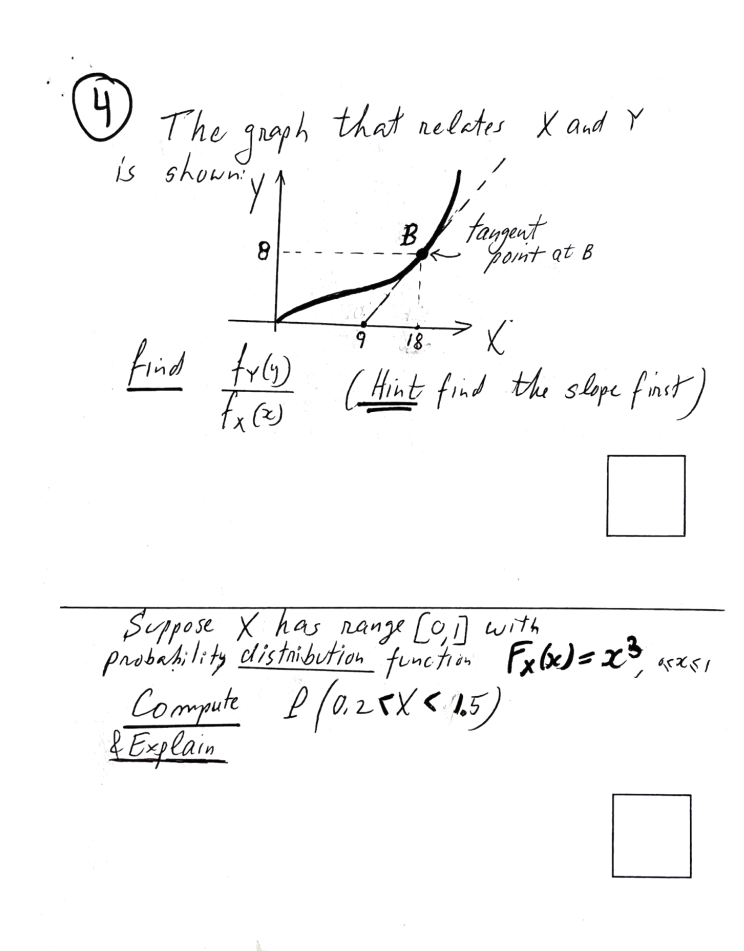 4
The graph that relates X and Y
is shown:
Y
8
B
tangent
point at B
9
18
X
find fY(y)/fX(x) (Hint find the slope first)
Suppose X has range [0,1] with
probability distribution function FX(x) = x³, 0≤x≤1
Compute P(0.2<X<1.5)
& Explain